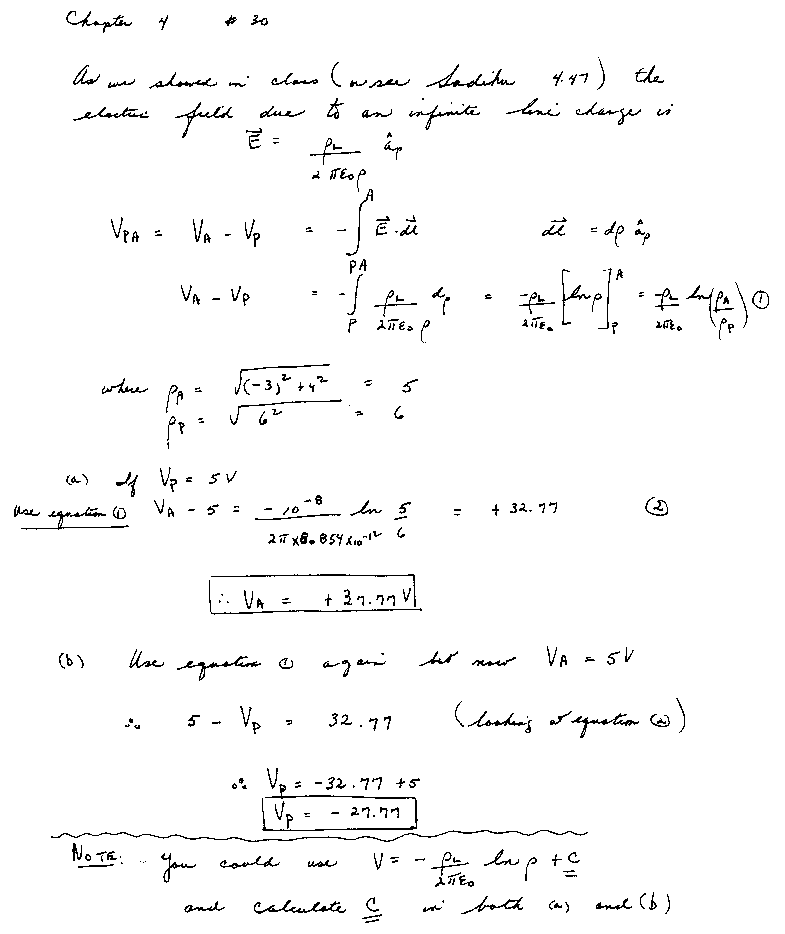 Chapter 4 # 30
As we showed in class (or see Sadiku 4.47) the
electric field due to an infinite line charge is
E⃗ = ρL / 2πε₀ρ âρ
VPA = VA - VP = -∫_P^A E⃗·dl⃗ dl⃗ = dρ âρ
VA - VP = -∫_P^A ρL / 2πε₀ρ dρ = -ρL / 2πε₀ [ln ρ]_P^A = -ρL / 2πε₀ ln(ρA / ρP) ①
where ρA = √((-3)² + 4²) = 5
ρP = √(6²) = 6
(a) If VP = 5V
Use equation ① VA - 5 = -10⁻⁸ / 2π×8.854×10⁻¹² ln 5/6 = + 32.77 ②
∴ VA = + 37.77 V
(b) Use equation ① again but now VA = 5V
∴ 5 - VP = 32.77 (looking at equation ②)
∴ VP = -32.77 + 5
VP = - 27.77
NOTE: - You could use V = - ρL / 2πε₀ ln ρ + C
and calculate C in both (a) and (b)